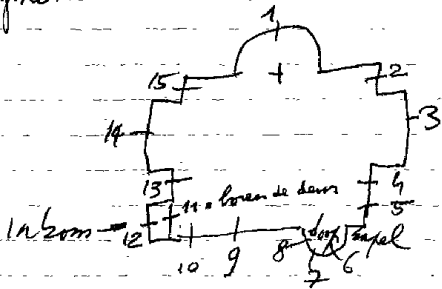 1
15
2
14
3
13
4
11 = boven de deur
5
Inkom
12
10
9
8
doopkapel
7
6